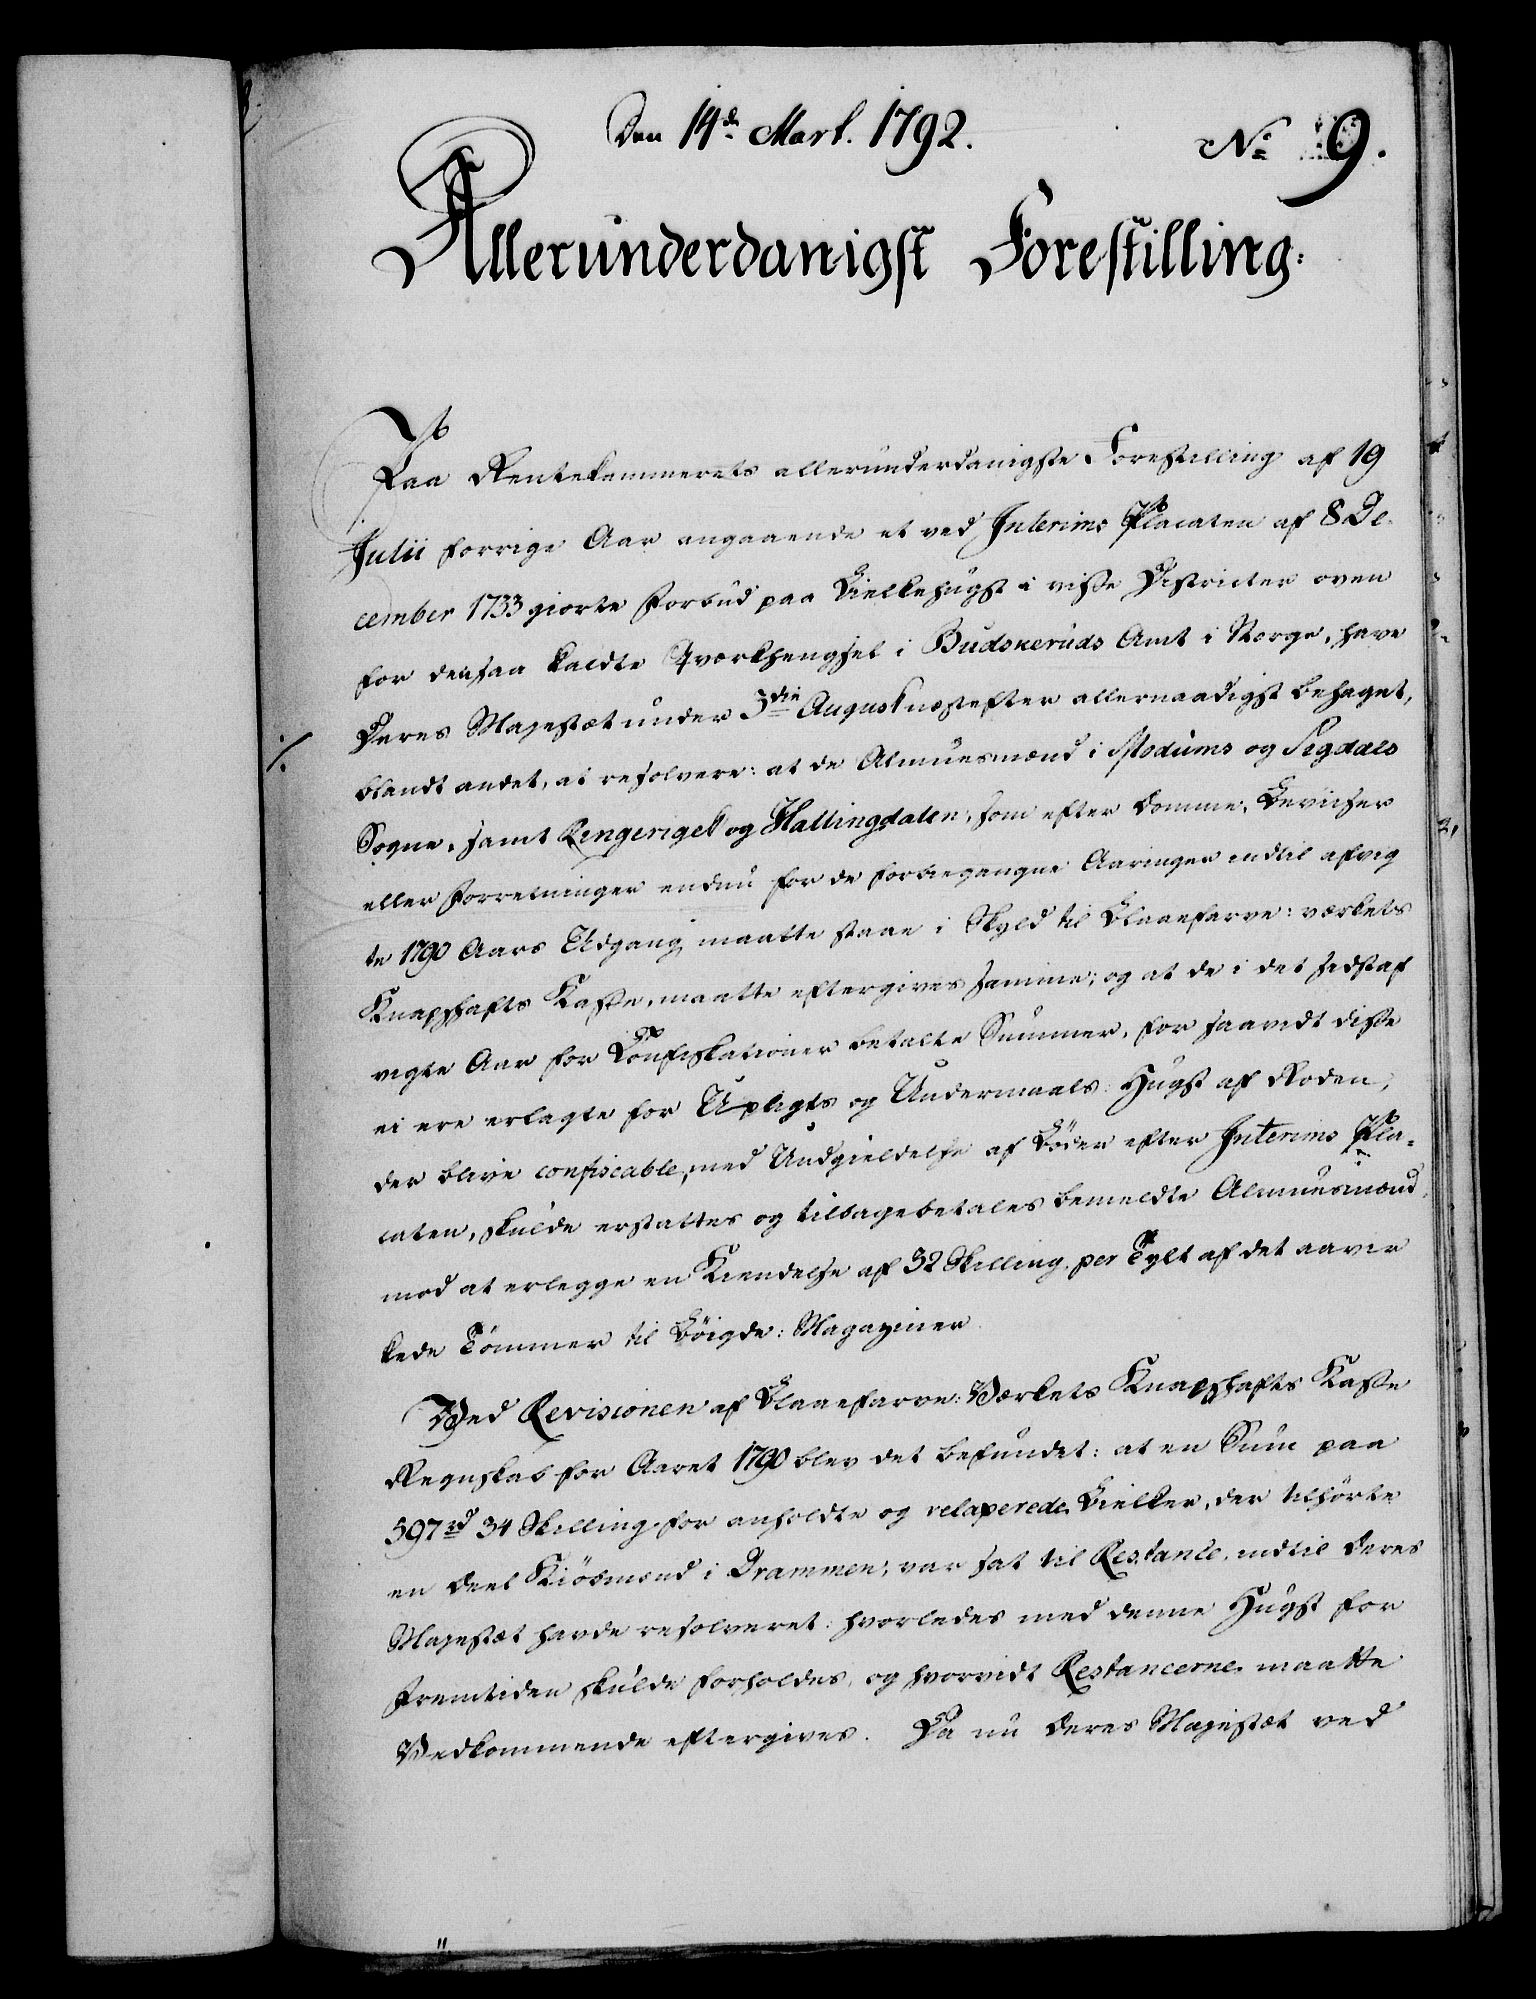 Den 14de Mart. 1792.
No 9.
Allerunderdanigst Forestilling:
Paa Rentekammerets allerunderdanigste Forestilling af 19
Julii forrige Aar angaaende et ved Interims Placaten af 8 De-
cember 1733 giorte Forbud paa Bielkehugst i visse Districter oven
for den saa kaldte Tværlhengsel i Budskeruds Amt i Norge, have
Deres Majestæt under 3die August næstefter allernaadigst behaget,
blandt andet, at resolvere: at de Almuesmænd i Modums og Sigdals
Sogne, samt Ringeriget og Hallingdalen, som efter Domme, Beviiser
eller Forretninger endnu for de forbiegangne Aaringer indtil afvig
te 1790 Aars Udgang maatte staae i Skyld til Blaaefarve-værkets
Knapshafts Kasse, maatte eftergives samme; og at de i det sidst af
vigte Aar for Confiskationer betalte Summer, for saavidt disse
ei ere erlagte for Upligts og Undermaals-Hugst af Roden,
der blive confiscable, med Undgieldelse af Bøder efter Interims Pla-
caten, skulde erstattes og tilbagebetales bemeldte Almuesmænd,
mod at erlegge en Kiendelse af 32 Skilling per Tylt af det aavir
kede Tømmer til Bøigde-Magaziner.
Ved Revisionen af Blaaefarve-Værkets Knapshafts Kasse
Regnskab for Aaret 1790 blev det befundet: at en Sum paa
597 rd 34 Skilling for anholdte og relaxerede Bielker, der tilhørte
en Deel Kiøbmænd i Drammen, var sat til Restance, indtil Deres
Majestæt havde resolveret: hvorledes med denne Hugst for
Fremtiden skulde forholdes, og hvorvidt Restancerne maatte
Vedkommende eftergives. Da nu Deres Majestæt ved